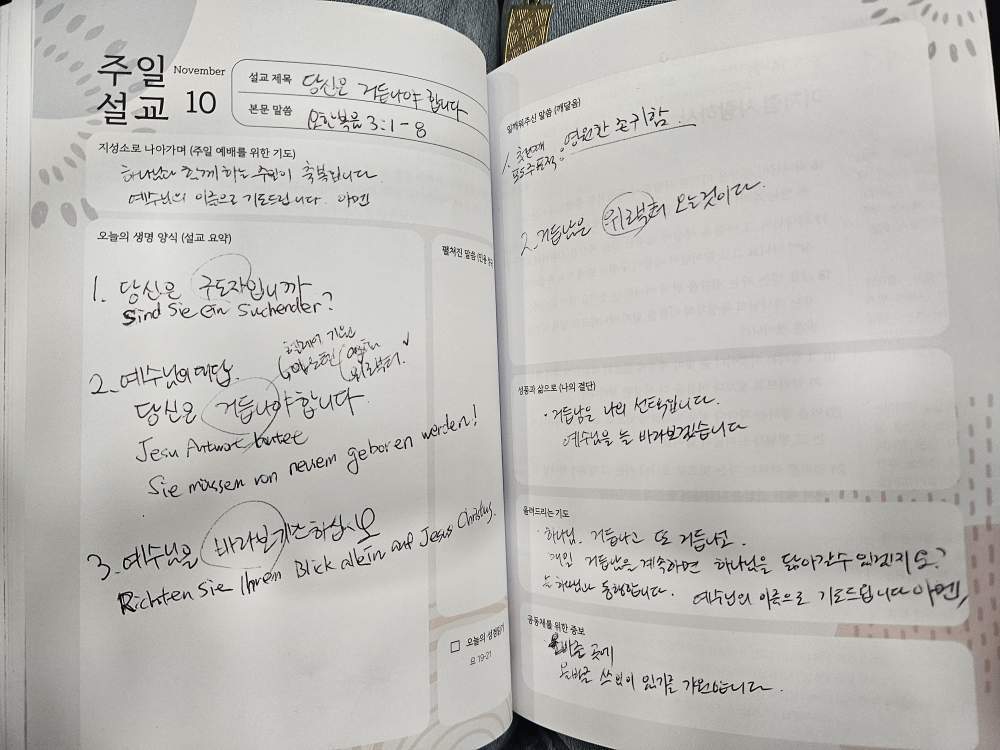 주일
설교
November
10
설교 제목 당신은 거듭나야 합니다
본문 말씀 요한복음 3:1-8
지성소로 나아가며 (주일 예배를 위한 기도)
하나님과 함께 하는 주일이 축복입니다.
예수님의 이름으로 기도드립니다. 아멘
오늘의 생명 양식 (설교 요약)
1. 당신은 구도자입니까
Sind Sie ein Suchender?
2. 예수님의 대답.
당신은 거듭나야 합니다.
Jesu Antwort lautet
Sie müssen von neuem geboren werden!
위로부터.
3. 예수님을 바라보게 하십시오
Richten Sie Ihren Blick allein auf Jesus Christus.
펼쳐진 말씀
오늘의 성경읽기
요 19-21
일깨워주신 말씀 (깨달음)
1. 첫번째 : 영원한 존귀함
2. 거듭남은 위로부터 오는것이다.
성품과 삶으로 (나의 결단)
· 거듭남은 나의 선택입니다.
예수님을 늘 바라보겠습니다
올려드리는 기도
· 하나님. 거듭나고 또 거듭나고.
매일 거듭남을 계속하면 하나님을 닮아갈수 있겠지요?
늘 하나님과 동행합니다. 예수님의 이름으로 기도드립니다 아멘,
공동체를 위한 중보
곳에
쓰임이 있기를